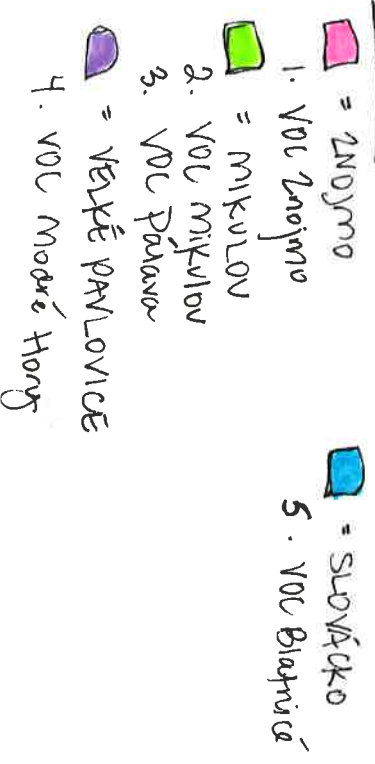 = ZNOJMO
1. VOC Znojmo
= MIKULOV
2. VOC MIKULOV
3. VOC Pálava
= VELKÉ PAVLOVICE
4. VOC Modré Hory
= SLOVÁCKO
5. VOC Blatnicé